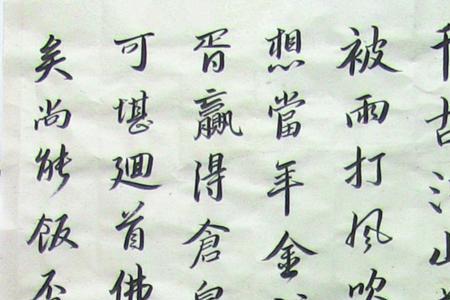 千古江山
被雨打风吹
想當年金
胥贏得倉皇
可堪迴首佛
矣尚能飯否